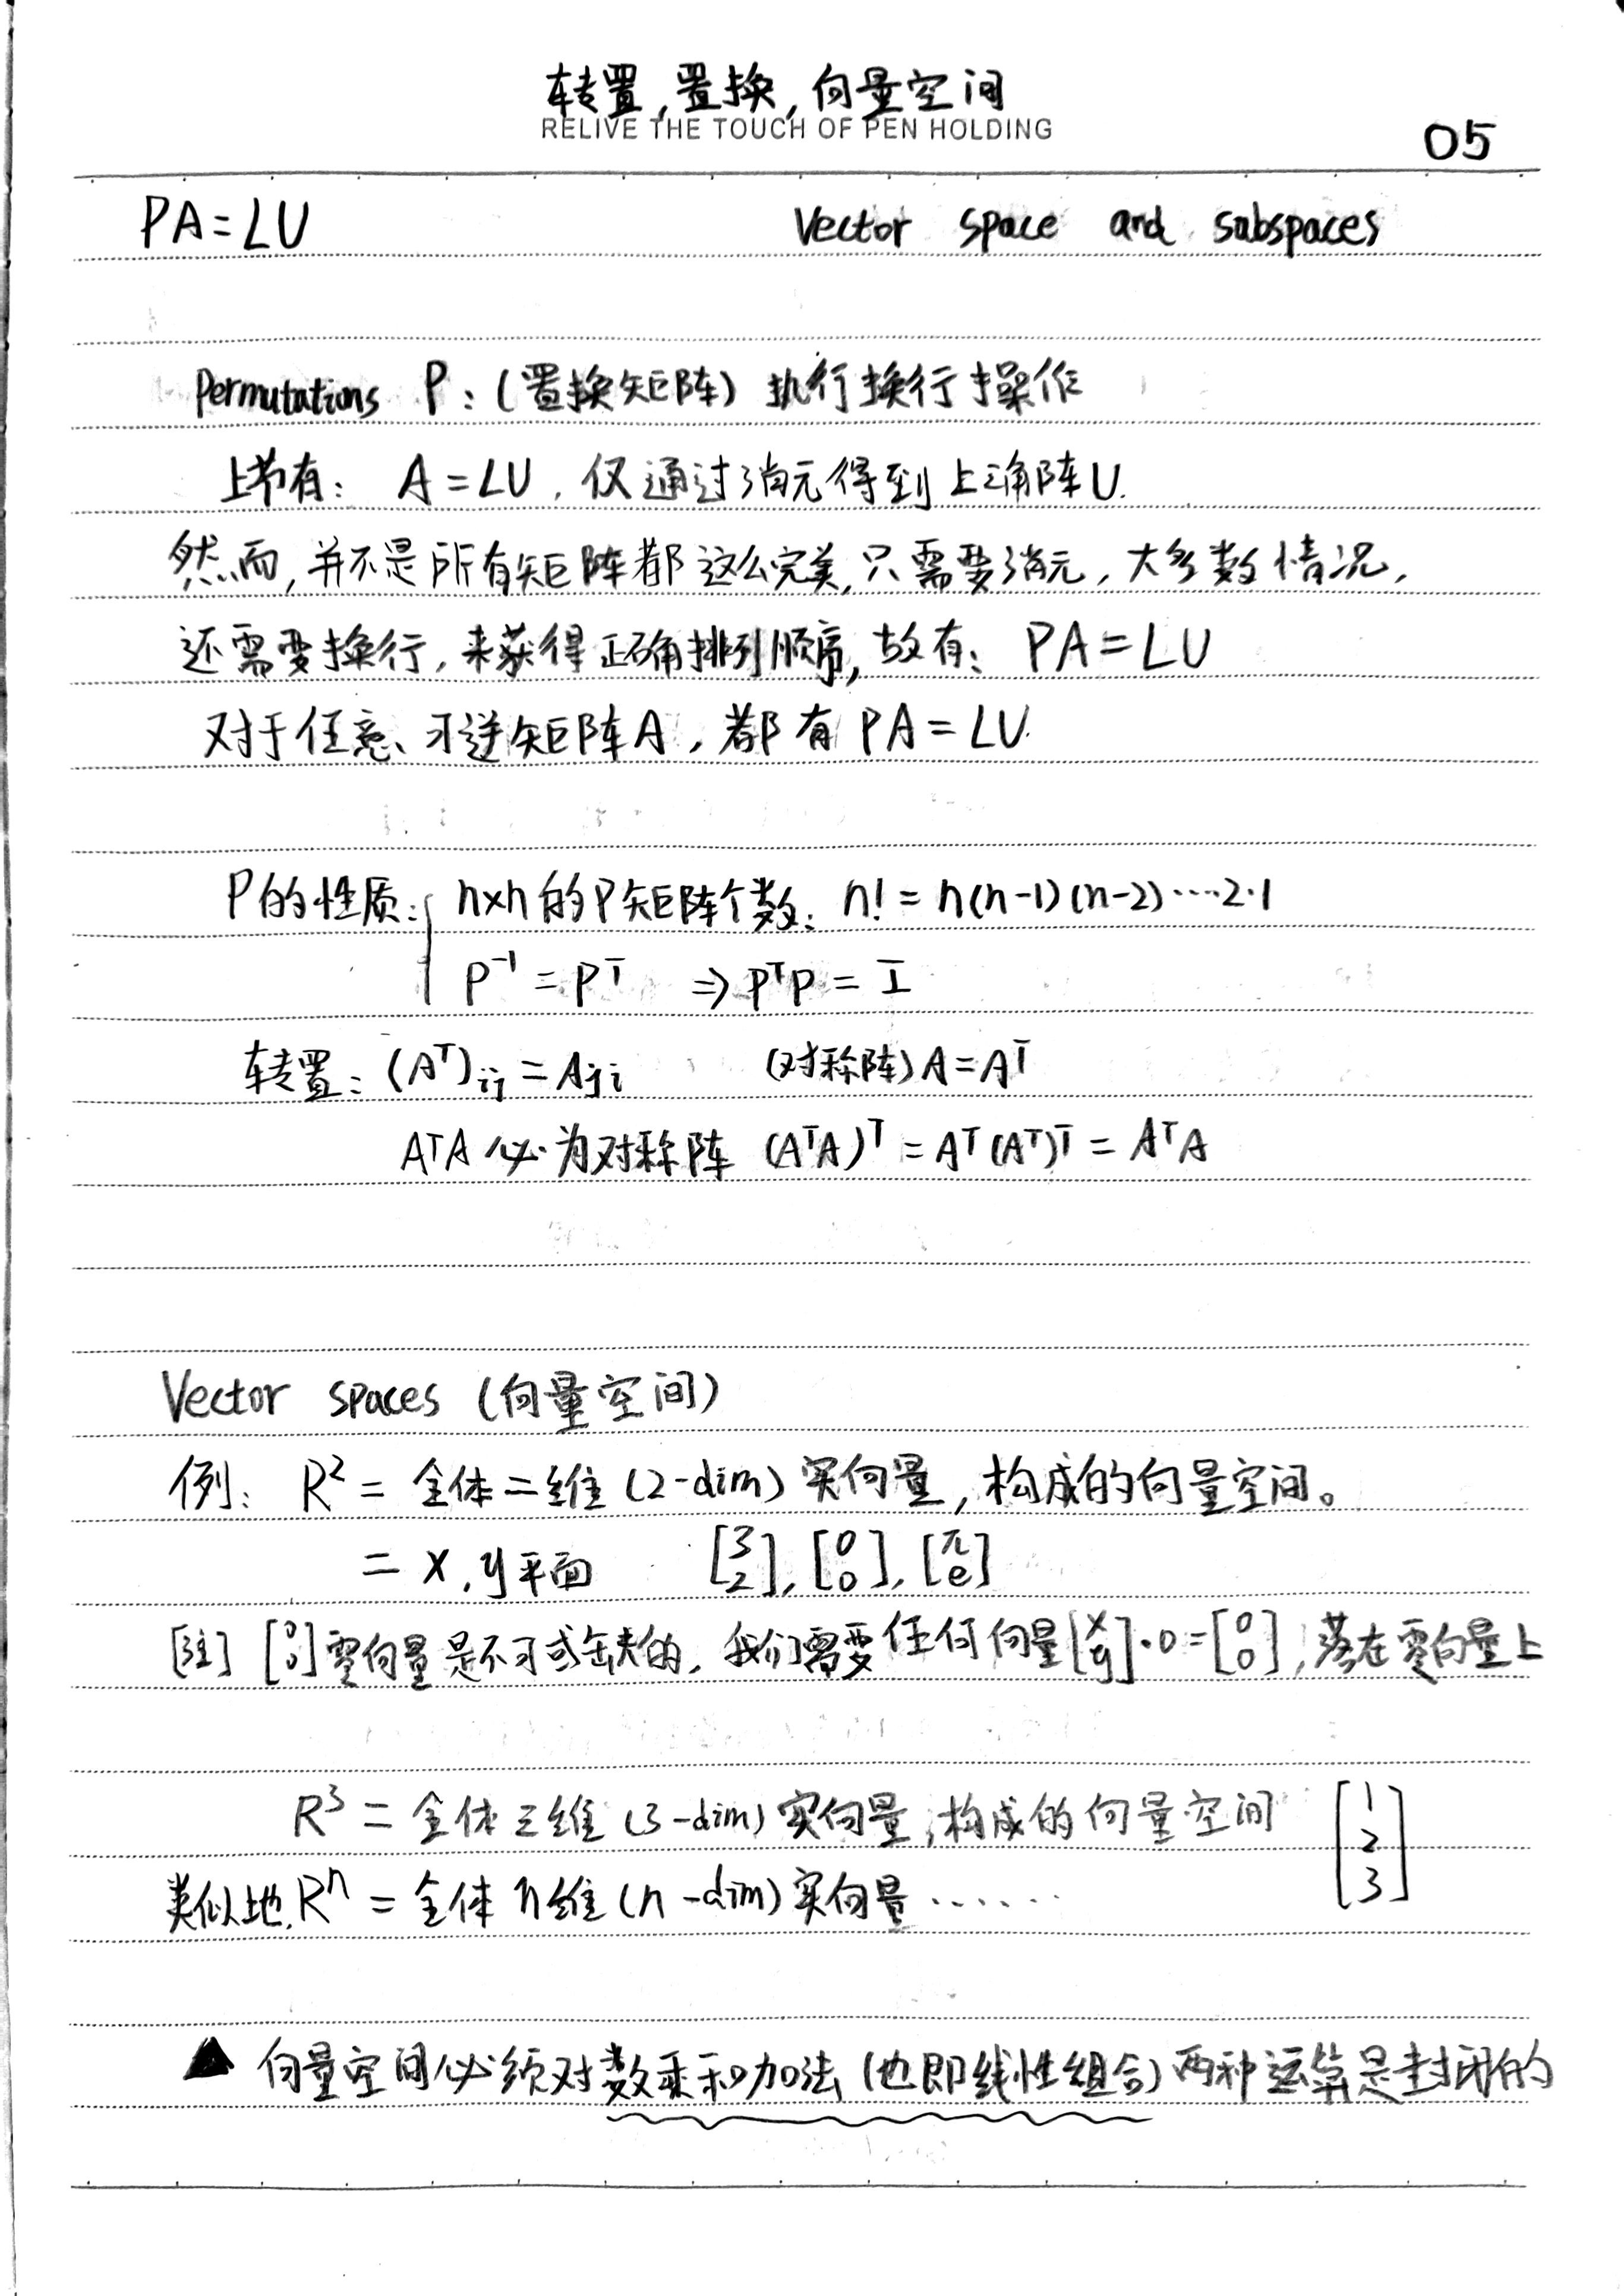 转置,置换,向量空间
RELIVE THE TOUCH OF PEN HOLDING
05
PA=LU Vector space and subspaces
Permutations P:(置换矩阵) 执行换行操作
上节有: A=LU,仅通过消元得到上三角阵U.
然而,并不是所有矩阵都这么完美,只需要消元,大多数情况,
还需要换行,来获得正确排列顺序,故有: PA=LU
对于任意、可逆矩阵A,都有PA=LU.
P的性质:{ n×n的P矩阵个数: n!=n(n-1)(n-2)····2·1
P⁻¹=Pᵀ ⇒PᵀP=I
转置:(Aᵀ)ᵢⱼ=Aⱼᵢ (对称阵)A=Aᵀ
AᵀA必为对称阵 (AᵀA)ᵀ=Aᵀ(Aᵀ)ᵀ=AᵀA
Vector spaces (向量空间)
例: R²=全体二维(2-dim)实向量,构成的向量空间。
=x,y平面 [3 2],[0 0],[π e]
[注] [0 0]零向量是不可或缺的,我们需要任何向量[x y]·0=[0 0],落在零向量上
R³=全体三维(3-dim)实向量,构成的向量空间 [1 2 3]
类似地,Rⁿ=全体n维(n-dim)实向量······
▲ 向量空间必须对数乘和加法(也即线性组合)两种运算是封闭的